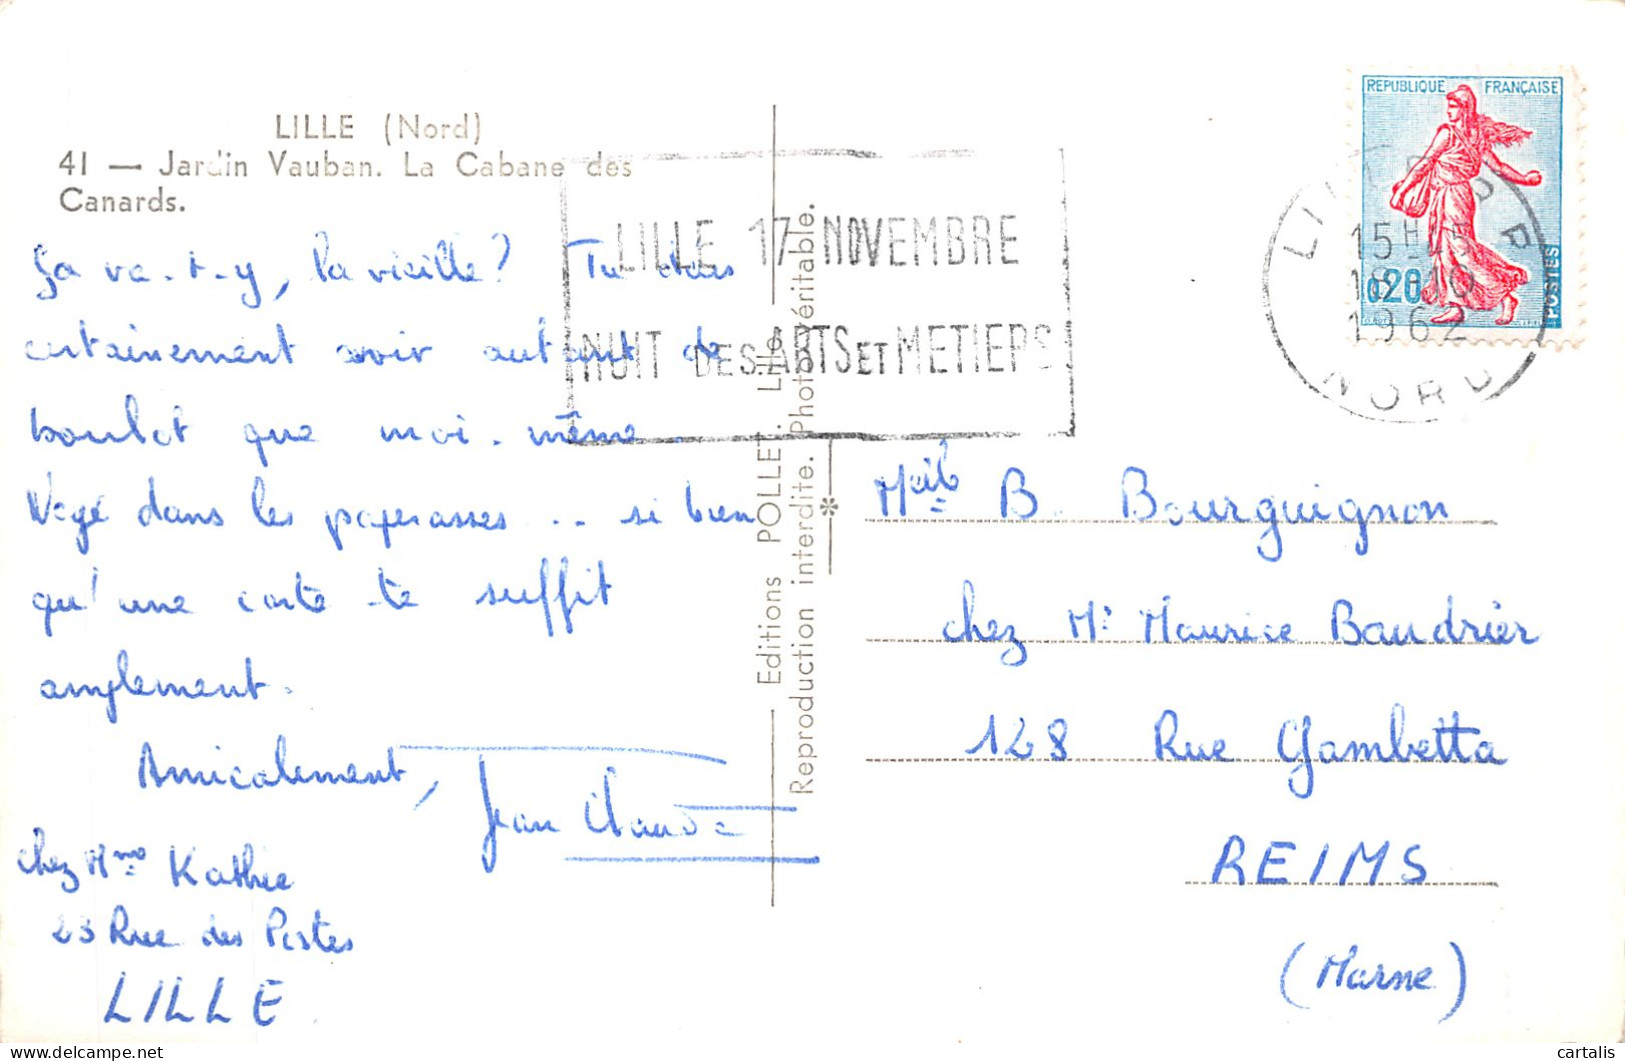 LILLE (Nord)
41 — Jardin Vauban. La Cabane des
Canards.
Ça va-t-y, la vieille? Tu dois
certainement avoir autant de
boulot que moi-même.
Noyé dans les paperasses... si bien
qu'une carte te suffit
amplement.
Amicalement,
Jean Claude
chez Mme
23 Rue des Postes
LILLE
Editions POLLET. Lille.
Reproduction interdite. Photo véritable.
LILLE 17 NOVEMBRE
NUIT DES ARTS ET METIERS
REPUBLIQUE FRANÇAISE
0,20
POSTES
LILLE R P
15H15
18-10
1962
NORD
Melle B. Bourguignon
chez Mr Maurice Baudrier
128 Rue Gambetta
REIMS
(Marne)
cartalis